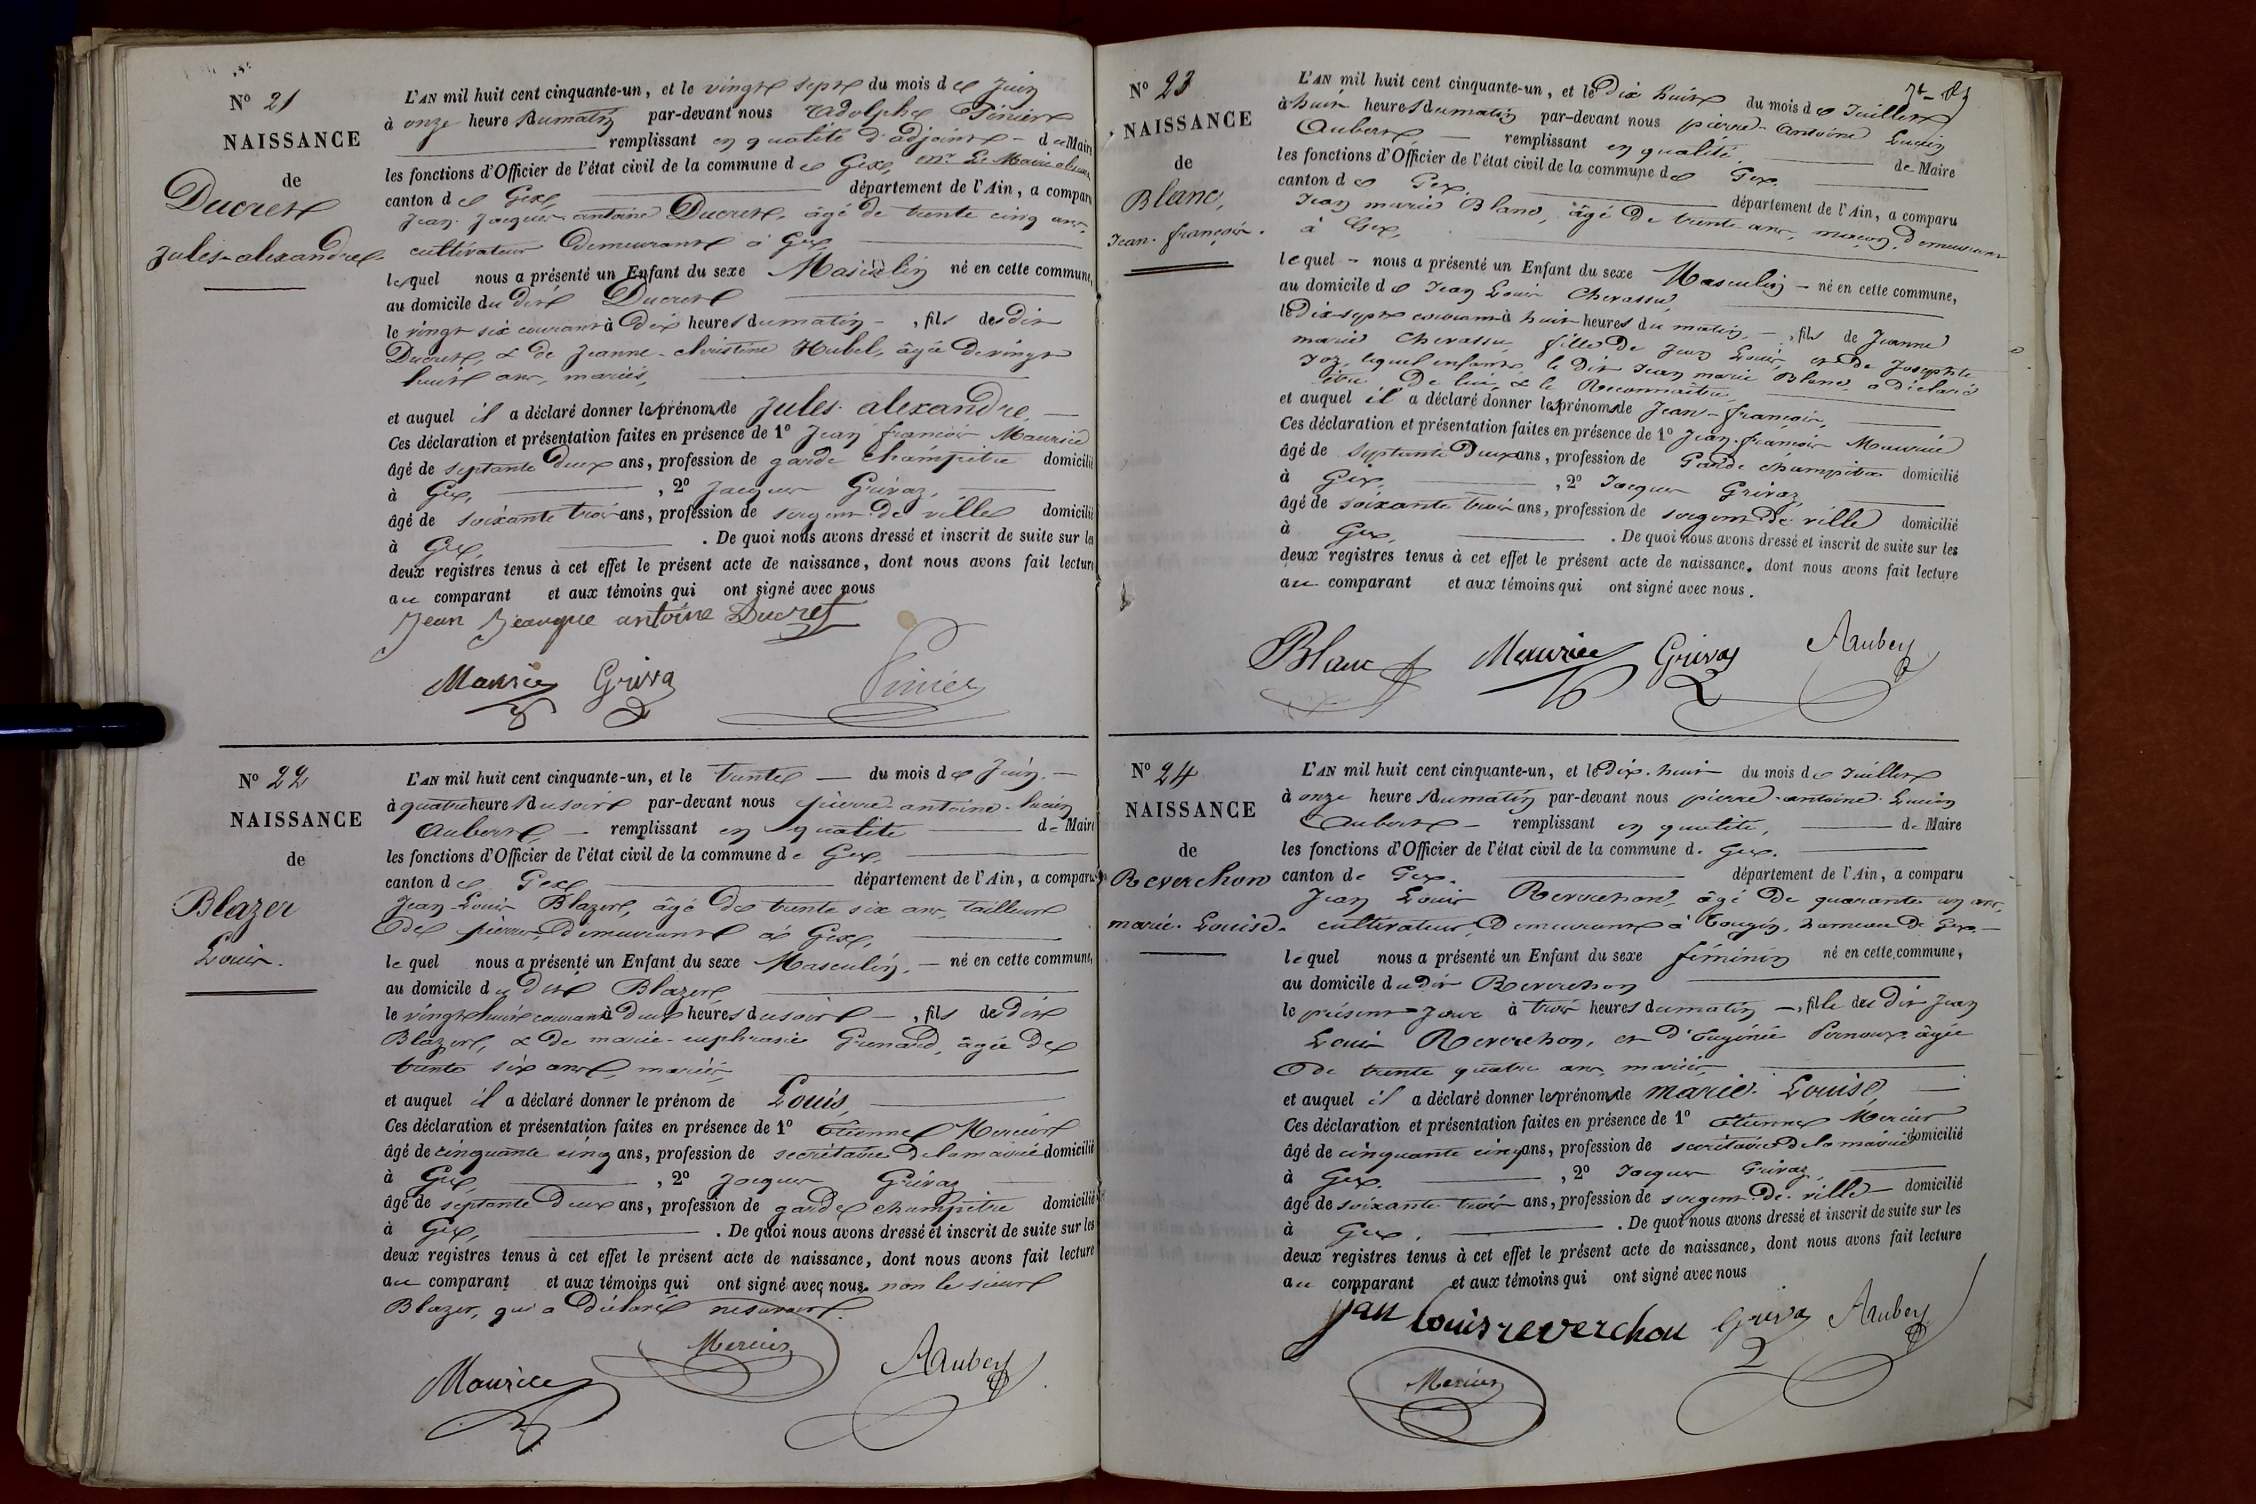 N° 21
NAISSANCE
de
Ducret
Jules-alexandre
L'AN mil huit cent cinquante-un, et le vingt sept du mois de Juin
à onze heures du matin par-devant nous Adolphe Pinier
remplissant en qualité d'adjoint de Maire
les fonctions d'Officier de l'état civil de la commune de Gex, Mr Le Maire absent
canton de Gex, département de l'Ain, a comparu
Jean-Jacques-antoine Ducret, âgé de trente cinq ans,
cultivateur demeurant à Gex,
lequel nous a présenté un Enfant du sexe Masculin né en cette commune,
au domicile du dit Ducret
le vingt six courant à dix heures du matin, fils du dit
Ducret, & de Jeanne-christine Hubel, âgée de vingt
huit ans, mariés,
et auquel il a déclaré donner les prénoms de Jules-alexandre.
Ces déclaration et présentation faites en présence de 1° Jean françois Maurice
âgé de septante deux ans, profession de garde champêtre domicilié
à Gex, , 2° Jacques Grivaz,
âgé de soixante trois ans, profession de sergent de ville domicilié
à Gex, . De quoi nous avons dressé et inscrit de suite sur les
deux registres tenus à cet effet le présent acte de naissance, dont nous avons fait lecture
au comparant et aux témoins qui ont signé avec nous
Jean Jeauque antoine Ducret
Maurice Griva Pinier
N° 22
NAISSANCE
de
Blazer
Louis.
L'AN mil huit cent cinquante-un, et le trente du mois de Juin.
à quatre heures du soir par-devant nous pierre-antoine-lucien
Aubert, remplissant en qualité de Maire
les fonctions d'Officier de l'état civil de la commune de Gex.
canton de Gex département de l'Ain, a comparu
Jean-Louis Blazer, âgé de trente six ans, tailleur
de pierres, demeurant à Gex,
lequel nous a présenté un Enfant du sexe Masculin, né en cette commune,
au domicile du dit Blazer
le vingt huit courant à deux heures du soir, fils du dit
Blazer, & de marie-euphrasie Grenard, âgée de
trente six ans, mariés,
et auquel il a déclaré donner le prénom de Louis,
Ces déclaration et présentation faites en présence de 1° Etienne Mercier
âgé de cinquante cinq ans, profession de secrétaire de la mairie domicilié
à Gex, , 2° Jacques Grivaz
âgé de septante deux ans, profession de garde champêtre domicilié
à Gex, . De quoi nous avons dressé et inscrit de suite sur les
deux registres tenus à cet effet le présent acte de naissance, dont nous avons fait lecture
au comparant et aux témoins qui ont signé avec nous. non le sieur
Blazer, qui a déclaré ne savoir.
Mercier
Maurice AAubert
N° 23
NAISSANCE
de
Blanc,
Jean-françois.
L'AN mil huit cent cinquante-un, et le Dix huit du mois de Juillet
à huit heures du matin par-devant nous pierre-antoine Lucien
Aubert, remplissant en qualité. de Maire
les fonctions d'Officier de l'état civil de la commune de Gex.
canton de Gex. département de l'Ain, a comparu
Jean marie Blanc, âgé de trente ans, maçon, demeurant
à Gex,
lequel nous a présenté un Enfant du sexe Masculin né en cette commune,
au domicile de Jean Louis Chevassu,
le Dix-sept courant à huit heures du matin, fils de Jeanne
marie Chevassu fille de Jean Louis, et de Josephte
Joz, lequel enfant, le dit Jean marie Blanc a déclaré
être de lui, & le Reconnaître,
et auquel il a déclaré donner les prénoms de Jean-françois,
Ces déclaration et présentation faites en présence de 1° Jean-françois Maurice
âgé de septante deux ans, profession de Garde champêtre domicilié
à Gex, , 2° Jacques Grivaz
âgé de soixante trois ans, profession de sergent de ville domicilié
à Gex, . De quoi nous avons dressé et inscrit de suite sur les
deux registres tenus à cet effet le présent acte de naissance, dont nous avons fait lecture
au comparant et aux témoins qui ont signé avec nous.
Blanc Maurice Grivaz AAubert
N° 24
NAISSANCE
de
Reverchon
marie-Louise.
L'AN mil huit cent cinquante-un, et le Dix-huit du mois de Juillet
à onze heures du matin par-devant nous pierre-antoine-Lucien
Aubert remplissant en qualité, de Maire
les fonctions d'Officier de l'état civil de la commune de Gex.
canton de Gex. département de l'Ain, a comparu
Jean Louis Reverchon, âgé de quarante un ans,
cultivateur, demeurant à Tougin, hameau de Gex.
lequel nous a présenté un Enfant du sexe féminin né en cette commune,
au domicile du dit Reverchon
le présent jour à trois heures du matin, fille du dit Jean
Louis Reverchon, et d'Eugénie Pernoux âgée
de trente quatre ans, mariés,
et auquel il a déclaré donner les prénoms de marie-Louise,
Ces déclaration et présentation faites en présence de 1° Etienne Mercier
âgé de cinquante cinq ans, profession de secrétaire de la mairie domicilié
à Gex. , 2° Jacques Grivaz,
âgé de soixante trois ans, profession de sergent-de-ville domicilié
à Gex. . De quoi nous avons dressé et inscrit de suite sur les
deux registres tenus à cet effet le présent acte de naissance, dont nous avons fait lecture
au comparant et aux témoins qui ont signé avec nous
jean louis reverchon Grivaz AAubert
Mercier